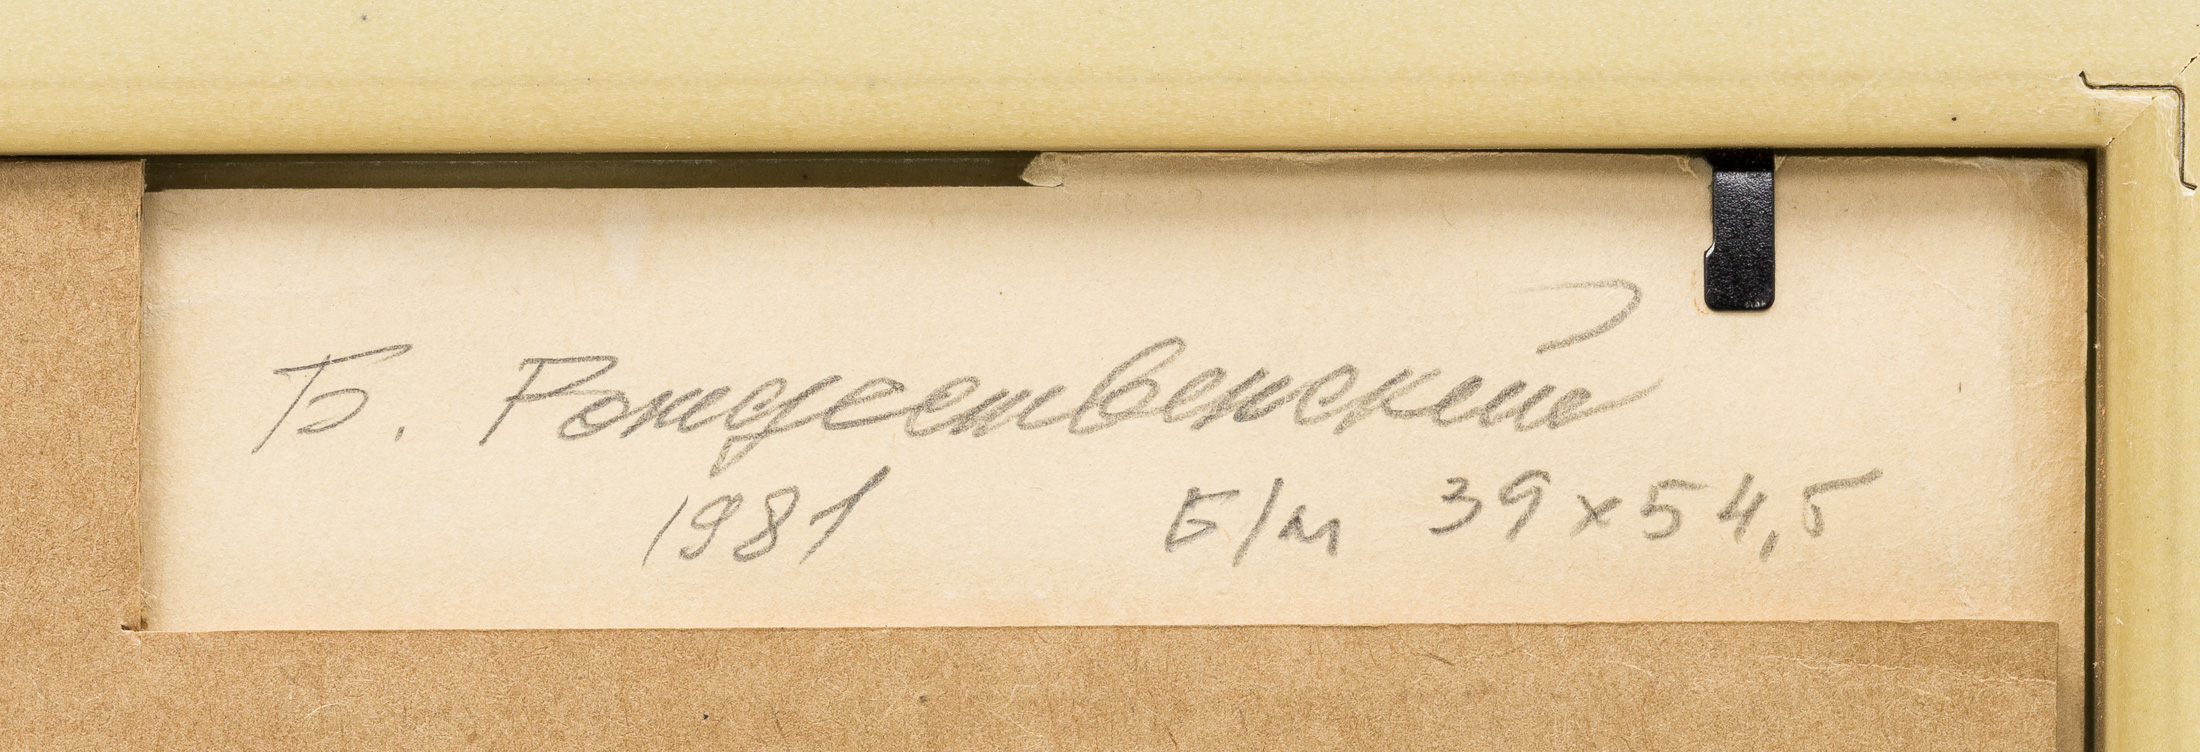 Б. Рождественский
1981 Б/м 39x54,5